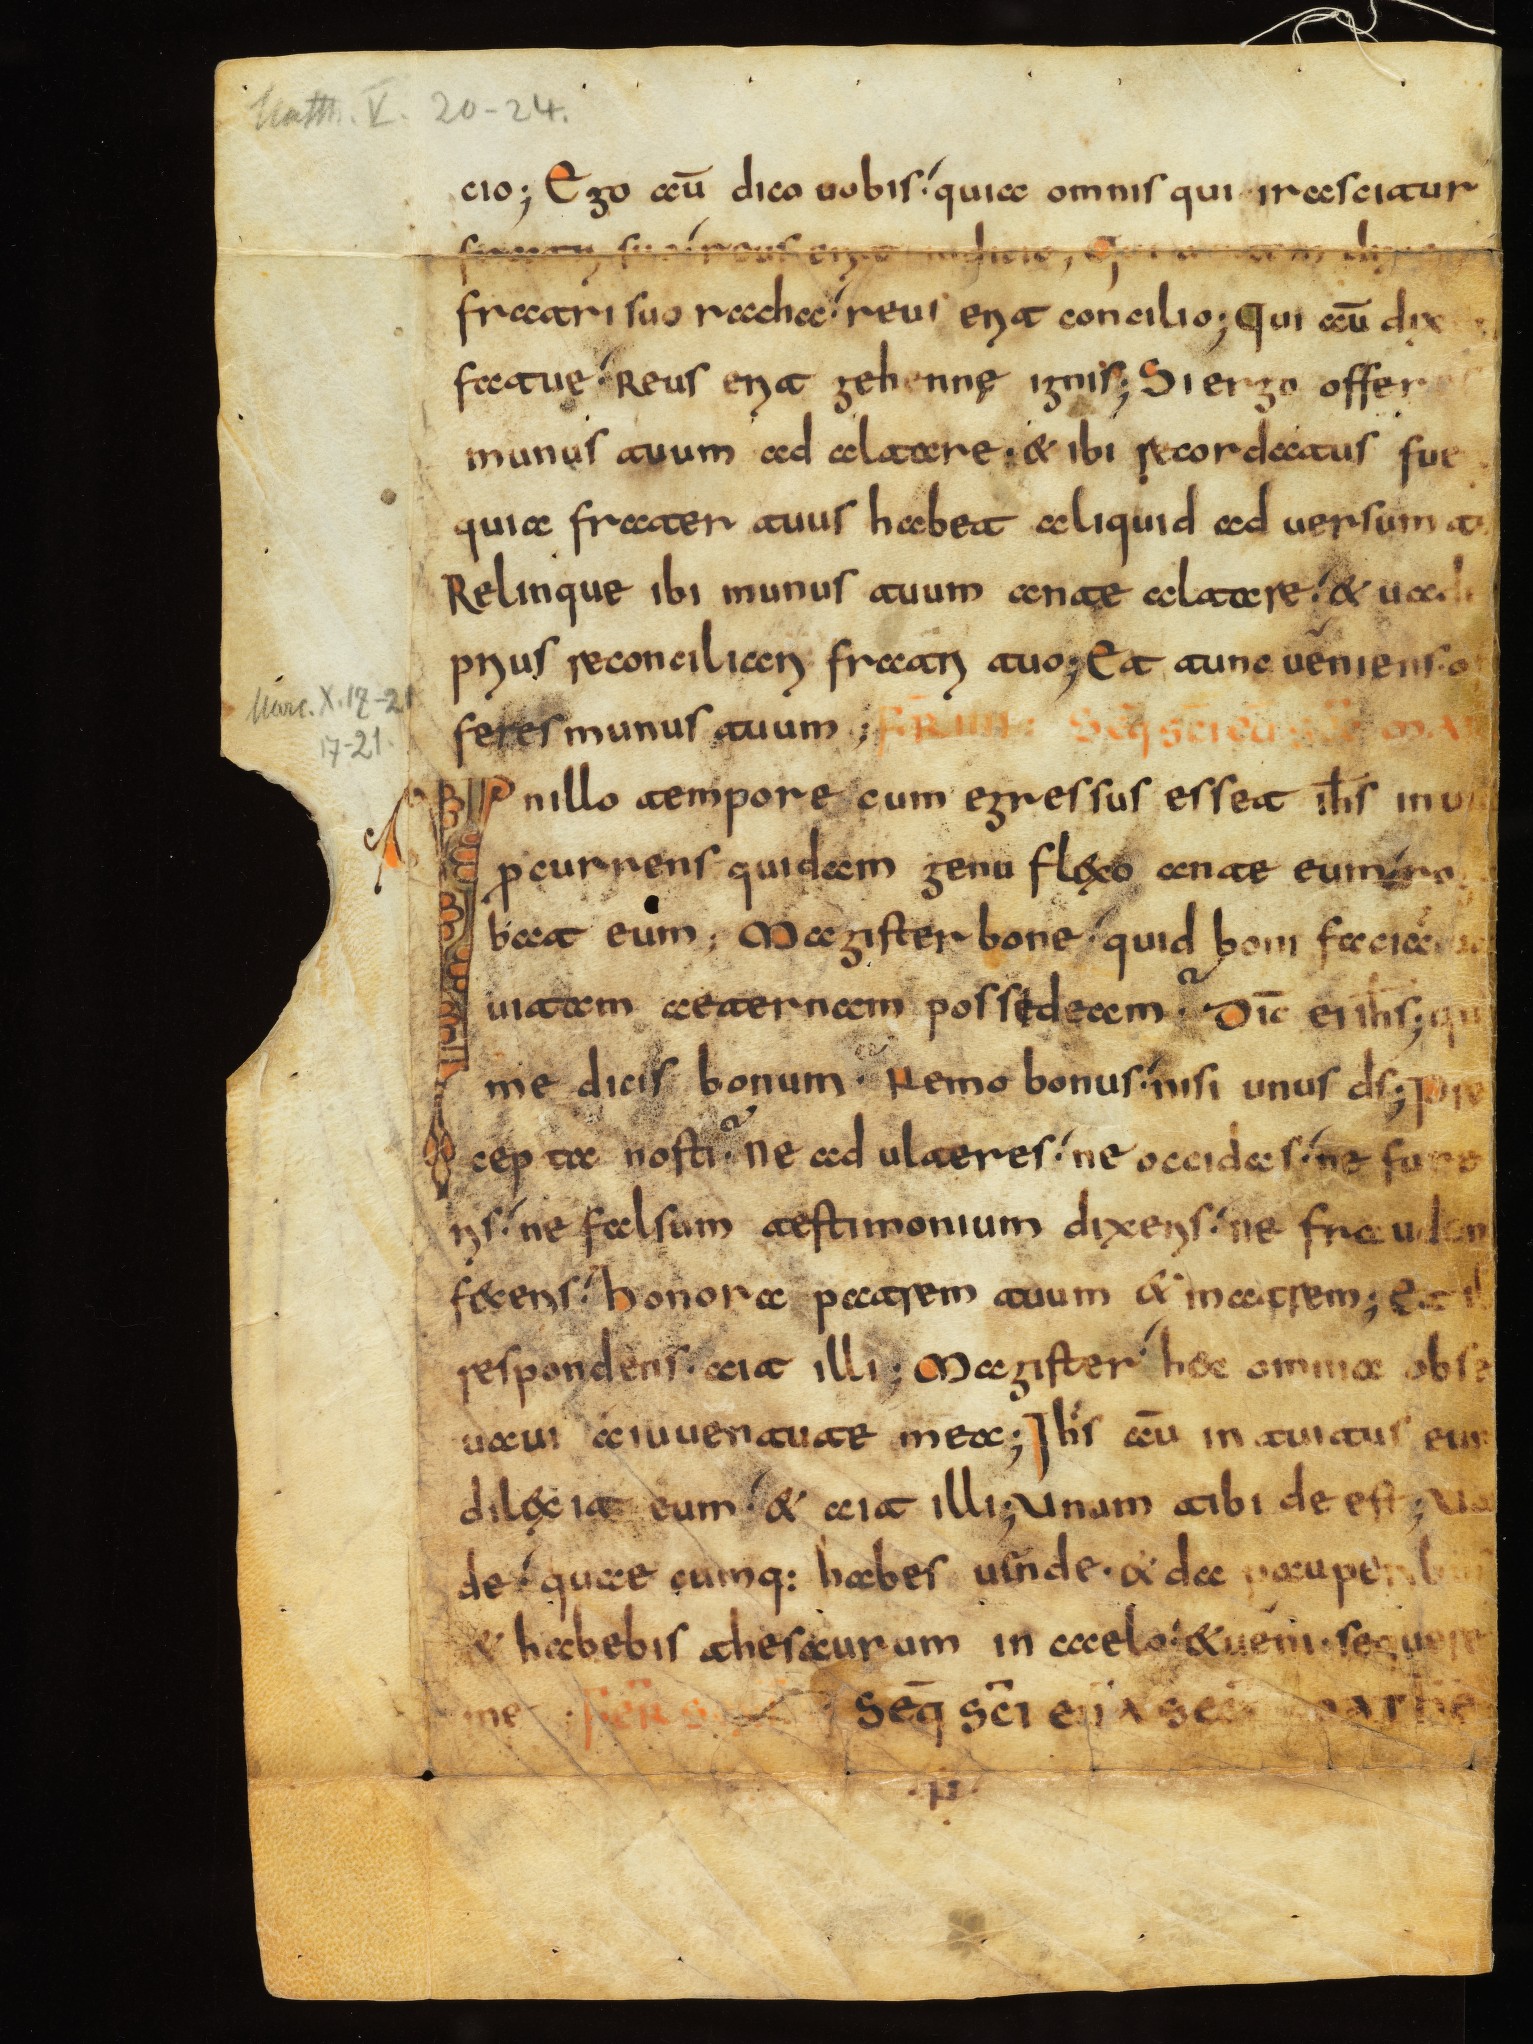 Matth. V. 20-24.
cio; Ego aū dico uobis: quia omnis qui irascitur
fratri suo reus erit iudicio; Qui autem
fratri suo racha: reus erit concilio; Qui aū dix
fatue: Reus erit gehennę ignis; Si ergo offer
munus tuum ad altare: & ibi recordatus fue
quia frater tuus habet aliquid aduersum
Relinque ibi munus tuum ante altare: & uad
prius reconciliari fratri tuo; Et tunc ueniens
feres munus tuum; Seq̄ sc̄i
Marc. X. 17-21
17-21.
In illo tempore cum egressus esset ih̄s in
p̄currens quidam genu flexo ante eum
bat eum; Magister bone: quid boni
uitam aeternam possedeam? Dic̄ ei ih̄s;
me dicis bonum. Nemo bonus: nisi unus ds̄; Pre
cepta nosti? Ne adulteres: ne occidas: ne
ris: ne falsum testimonium dixeris: ne
feceris: honora patrem tuum & matrem; Et
respondens ait illi; Magister hec omnia obse
uaui a iuuentute mea; Ih̄s aū intuitus
dilexit eum: & ait illi; Unum tibi deest;
de: quae cumq: habes uende. & da pauperib
& habebis thesaurum in caelo: & ueni sequere
me. Seq̄ sc̄i